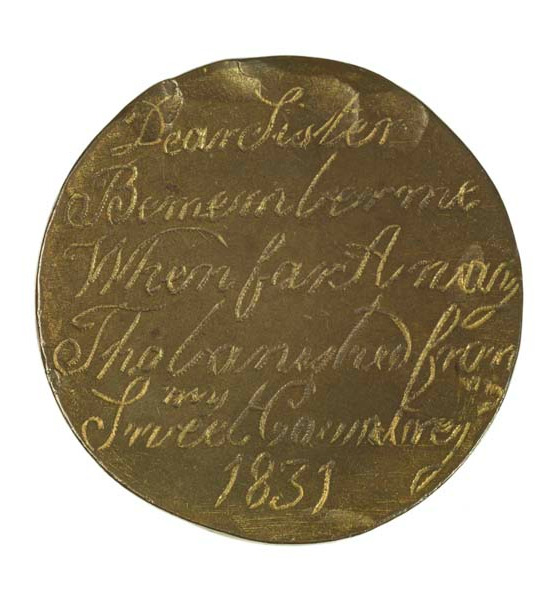 Dear Sister
Remember me
When far Away
Tho banished from
my
Sweet Countrey
1831